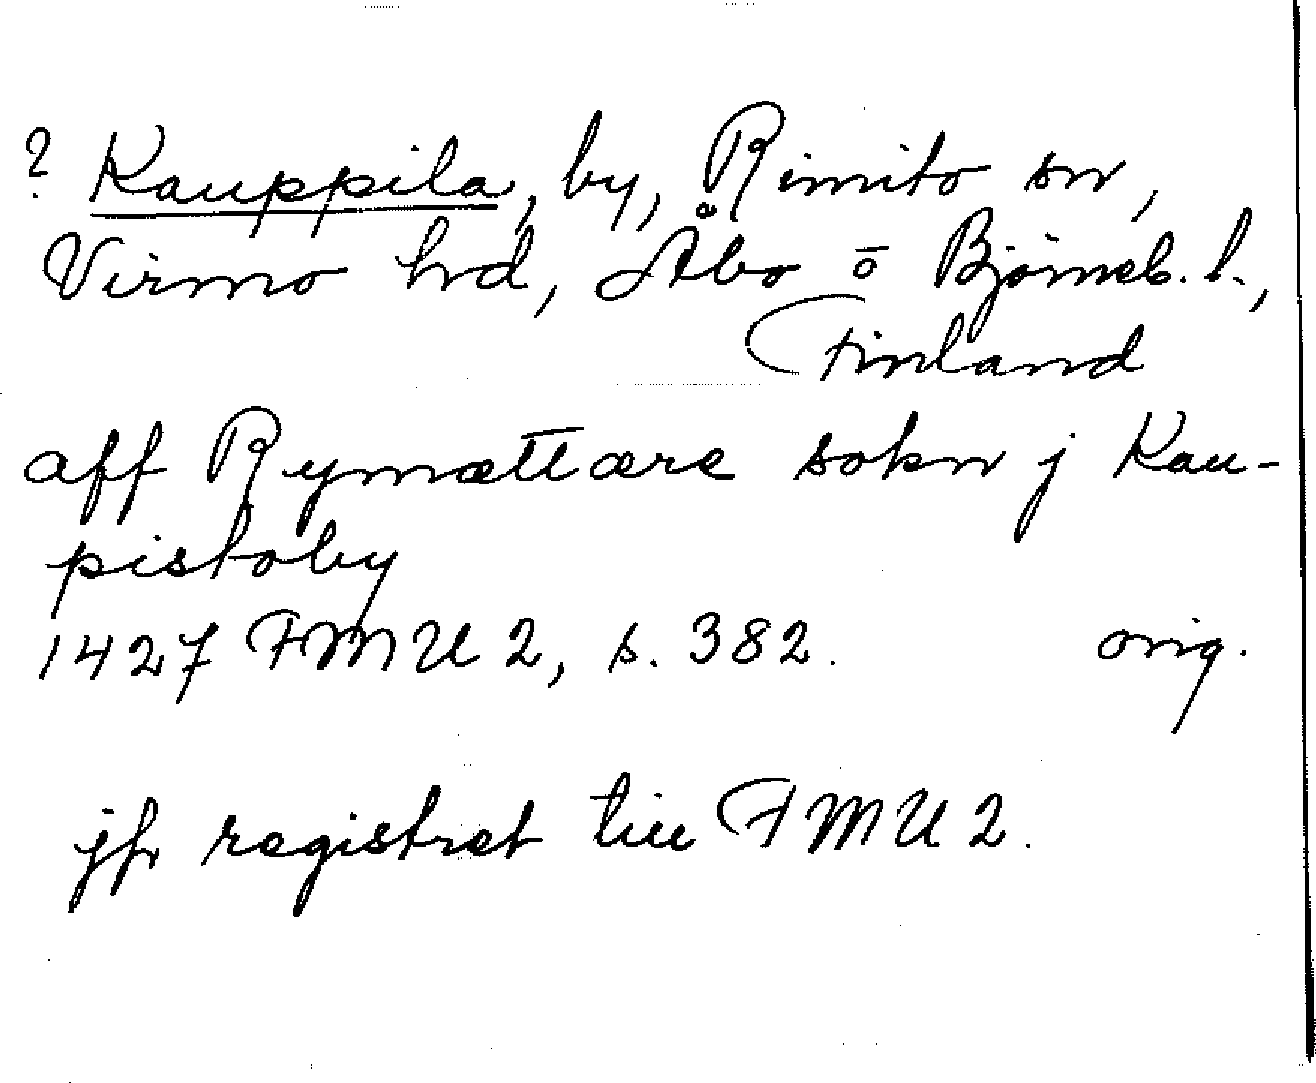 ? Kauppila, by, Rimito sn,
Virmo hd, Åbo o Björneb. l.,
Finland
aff Rymættære sokn j Kau-
pistoby
1427 FMU 2, s. 382. orig.
jfr registret till FMU 2.